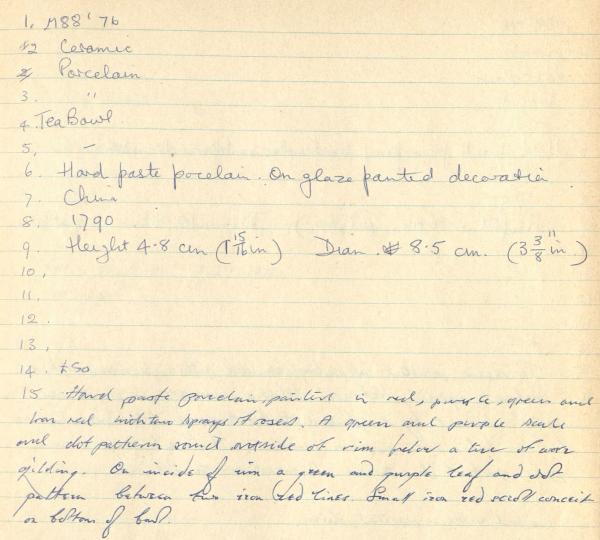 1. M88'76
2 Ceramic
2 Porcelain
3. "
4. Tea Bowl.
5, –
6. Hard paste porcelain. On glaze painted decoration.
7. China
8. 1790
9. Height 4.8 cm (1 15/16 in) Diam. 8.5 cm. (3 3/8" in.)
10,
11.
12.
13,
14. £50
15 Hard paste porcelain, painted in red, purple, green and
iron red with two sprays of roses. A green and purple scale
and dot pattern round outside of rim below a line of worn
gilding. On inside of rim a green and purple leaf and dot
pattern between two iron red lines. Small iron red scroll conceit
on bottom of bowl.